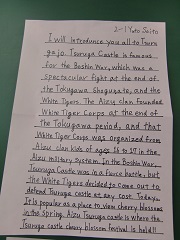 2-1 Yuto Saito
I will introduce you all to Tsuru
ga jo. Tsuruga Castle is famous
for the Boshin War, which was a
spectacular fight at the end of
the Tokugawa Shogunate, and the
White Tigers. The Aizu clan founded
White Tiger Corps at the end of
the Tokugawa period, and that
White Tiger Corps was organized from
Aizu clan kids of ages 16 to 17 in the
Aizu military system. In the Boshin War,
Tsuruga Castle was in a fierce battle, but
the White Tigers decided to come out to
defend Tsuruga castle at any cost. Today,
It is popular as a place to view cherry blossoms
in the spring. Aizu Tsuruga castle is where the
Tsuruga castle cherry blossom festival is held!!